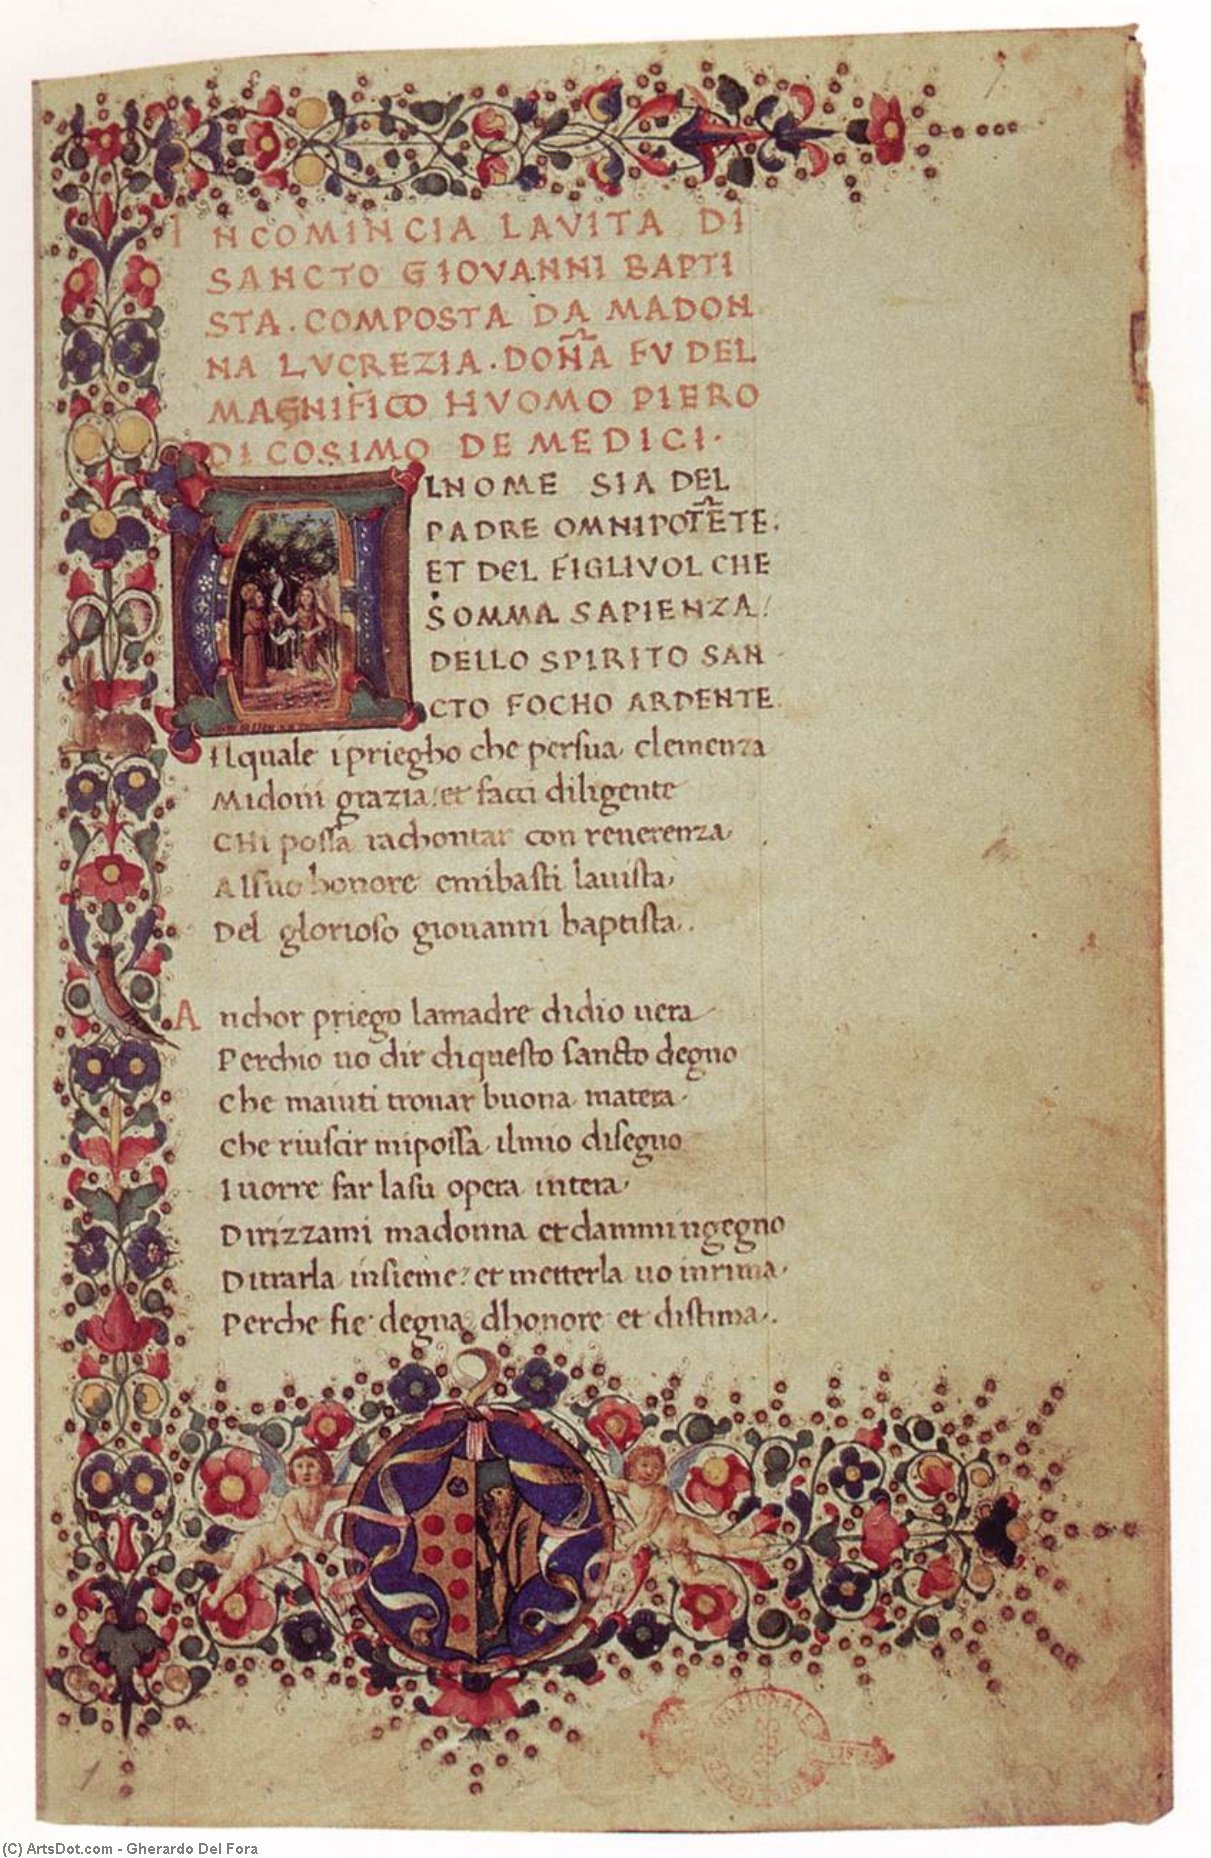 INCOMINCIA LAVITA DI
SANCTO GIOVANNI BAPTI
STA. COMPOSTA DA MADON
NA LVCREZIA. DOÑA FV DEL
MAGNIFICO HVOMO PIERO
DI COSIMO DE MEDICI.
ALNOME SIA DEL
PADRE OMNIPOTẼTE:
ET DEL FIGLIVOL CHE
SOMMA SAPIENZA!
DELLO SPIRITO SAN
CTO FOCHO ARDENTE.
Ilquale i priegho che persua clemenza
Midoni grazia: et facci diligente
CHi possa rachontar con reuerenza
Alsuo honore emribasti lauista
Del glorioso giouanni baptista.
Anchor priego lamadre didio uera
Perchio uo dir diquesto sancto degno
Che maiuti trouar buona matera.
Che riuscir mipossa ilmio disegno
I uorre far lasu opera intera.
Dirizzami madonna et dammi ngegno
Ditrarla insieme: et metterla uo inrima.
Perche fie degna dhonore et distima.
NAZIONALE
1
(C) ArtsDot.com - Gherardo Del Fora